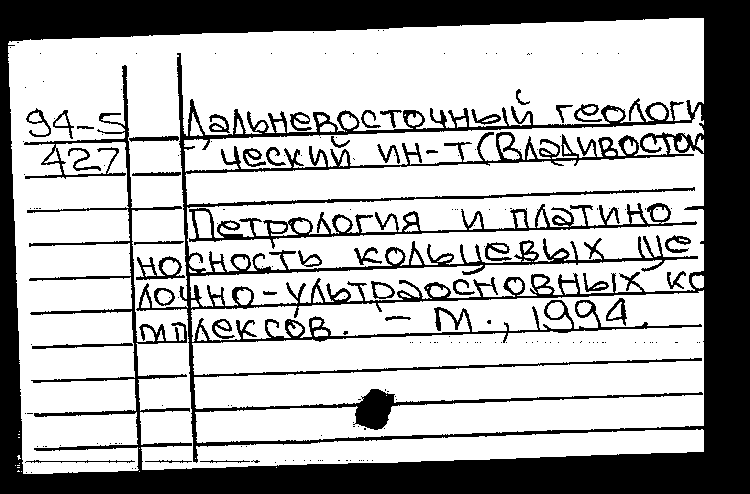 94-5 Дальневосточный геологи
427 ческий ин-т (Владивосток
Петрология и платино-
носность кольцевых ще-
лочно-ультраосновных ко
мплексов. - М., 1994.